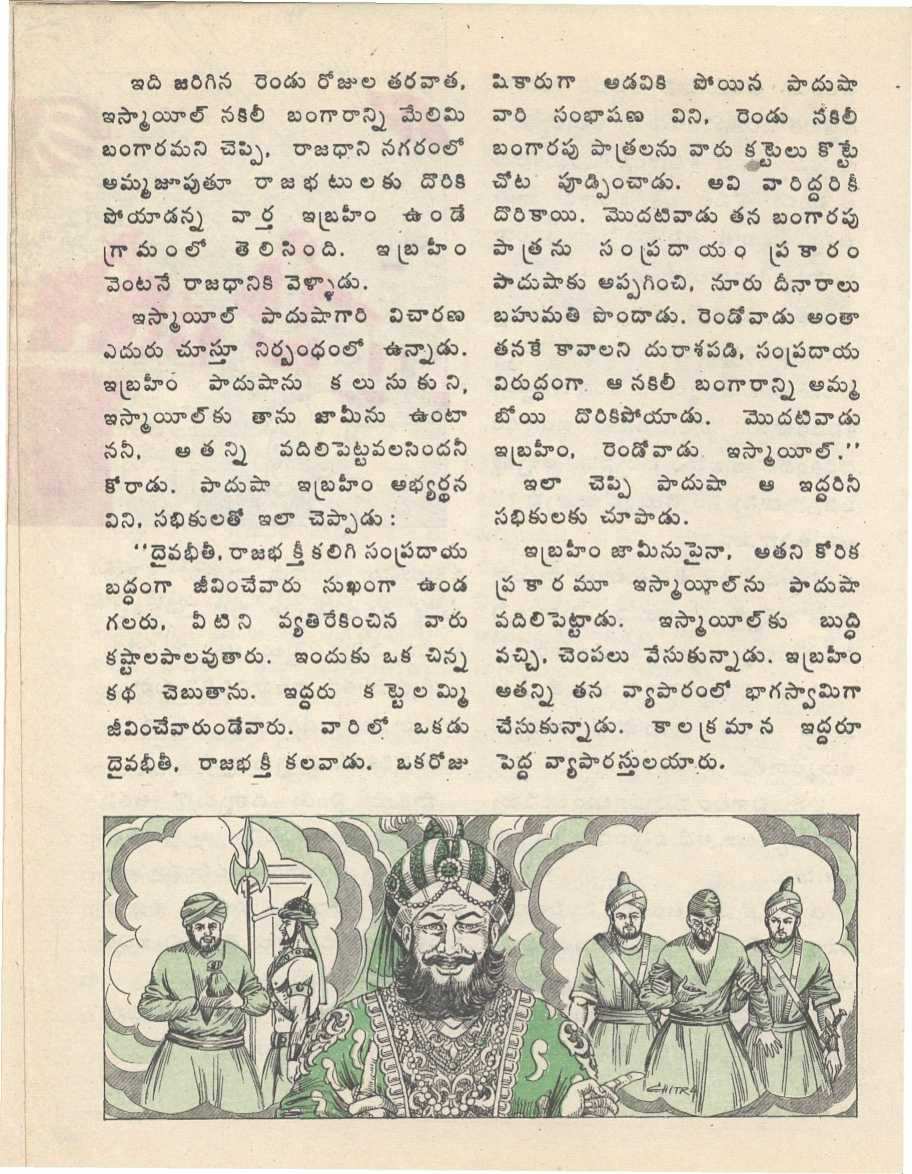 ఇది జరిగిన రెండు రోజుల తరవాత,
ఇస్మాయీల్ నకిలీ బంగారాన్ని మేలిమి
బంగారమని చెప్పి, రాజధాని నగరంలో
అమ్మజూపుతూ రాజభటులకు దొరికి
పోయాడన్న వార్త ఇబ్రహీం ఉండే
గ్రామంలో తెలిసింది. ఇబ్రహీం
వెంటనే రాజధానికి వెళ్ళాడు.
ఇస్మాయీల్ పాదుషాగారి విచారణ
ఎదురు చూస్తూ నిర్బంధంలో ఉన్నాడు.
ఇబ్రహీం పాదుషాను కలుసుకుని,
ఇస్మాయీల్‌కు తాను జామీను ఉంటా
ననీ, అతన్ని వదిలిపెట్టవలసిందనీ
కోరాడు. పాదుషా ఇబ్రహీం అభ్యర్థన
విని, సభికులతో ఇలా చెప్పాడు :
‘‘దైవభీతీ, రాజభక్తీ కలిగి సంప్రదాయ
బద్ధంగా జీవించేవారు సుఖంగా ఉండ
గలరు, వీటిని వ్యతిరేకించిన వారు
కష్టాలపాలవుతారు. ఇందుకు ఒక చిన్న
కథ చెబుతాను. ఇద్దరు కట్టెలమ్మి
జీవించేవారుండేవారు. వారిలో ఒకడు
దైవభీతీ, రాజభక్తీ కలవాడు. ఒకరోజు
షికారుగా అడవికి పోయిన పాదుషా
వారి సంభాషణ విని, రెండు నకిలీ
బంగారపు పాత్రలను వారు కట్టెలు కొట్టే
చోట పూడ్పించాడు. అవి వారిద్దరికీ
దొరికాయి. మొదటివాడు తన బంగారపు
పాత్రను సంప్రదాయం ప్రకారం
పాదుషాకు అప్పగించి, నూరు దీనారాలు
బహుమతి పొందాడు. రెండోవాడు అంతా
తనకే కావాలని దురాశపడి, సంప్రదాయ
విరుద్ధంగా ఆ నకిలీ బంగారాన్ని అమ్మ
బోయి దొరికిపోయాడు. మొదటివాడు
ఇబ్రహీం, రెండోవాడు ఇస్మాయీల్.’’
ఇలా చెప్పి పాదుషా ఆ ఇద్దరినీ
సభికులకు చూపాడు.
ఇబ్రహీం జామీనుపైనా, అతని కోరిక
ప్రకారమూ ఇస్మాయీల్‌ను పాదుషా
వదిలిపెట్టాడు. ఇస్మాయీల్‌కు బుద్ధి
వచ్చి, చెంపలు వేసుకున్నాడు. ఇబ్రహీం
అతన్ని తన వ్యాపారంలో భాగస్వామిగా
చేసుకున్నాడు. కాలక్రమాన ఇద్దరూ
పెద్ద వ్యాపారస్తులయారు.
CHITRA